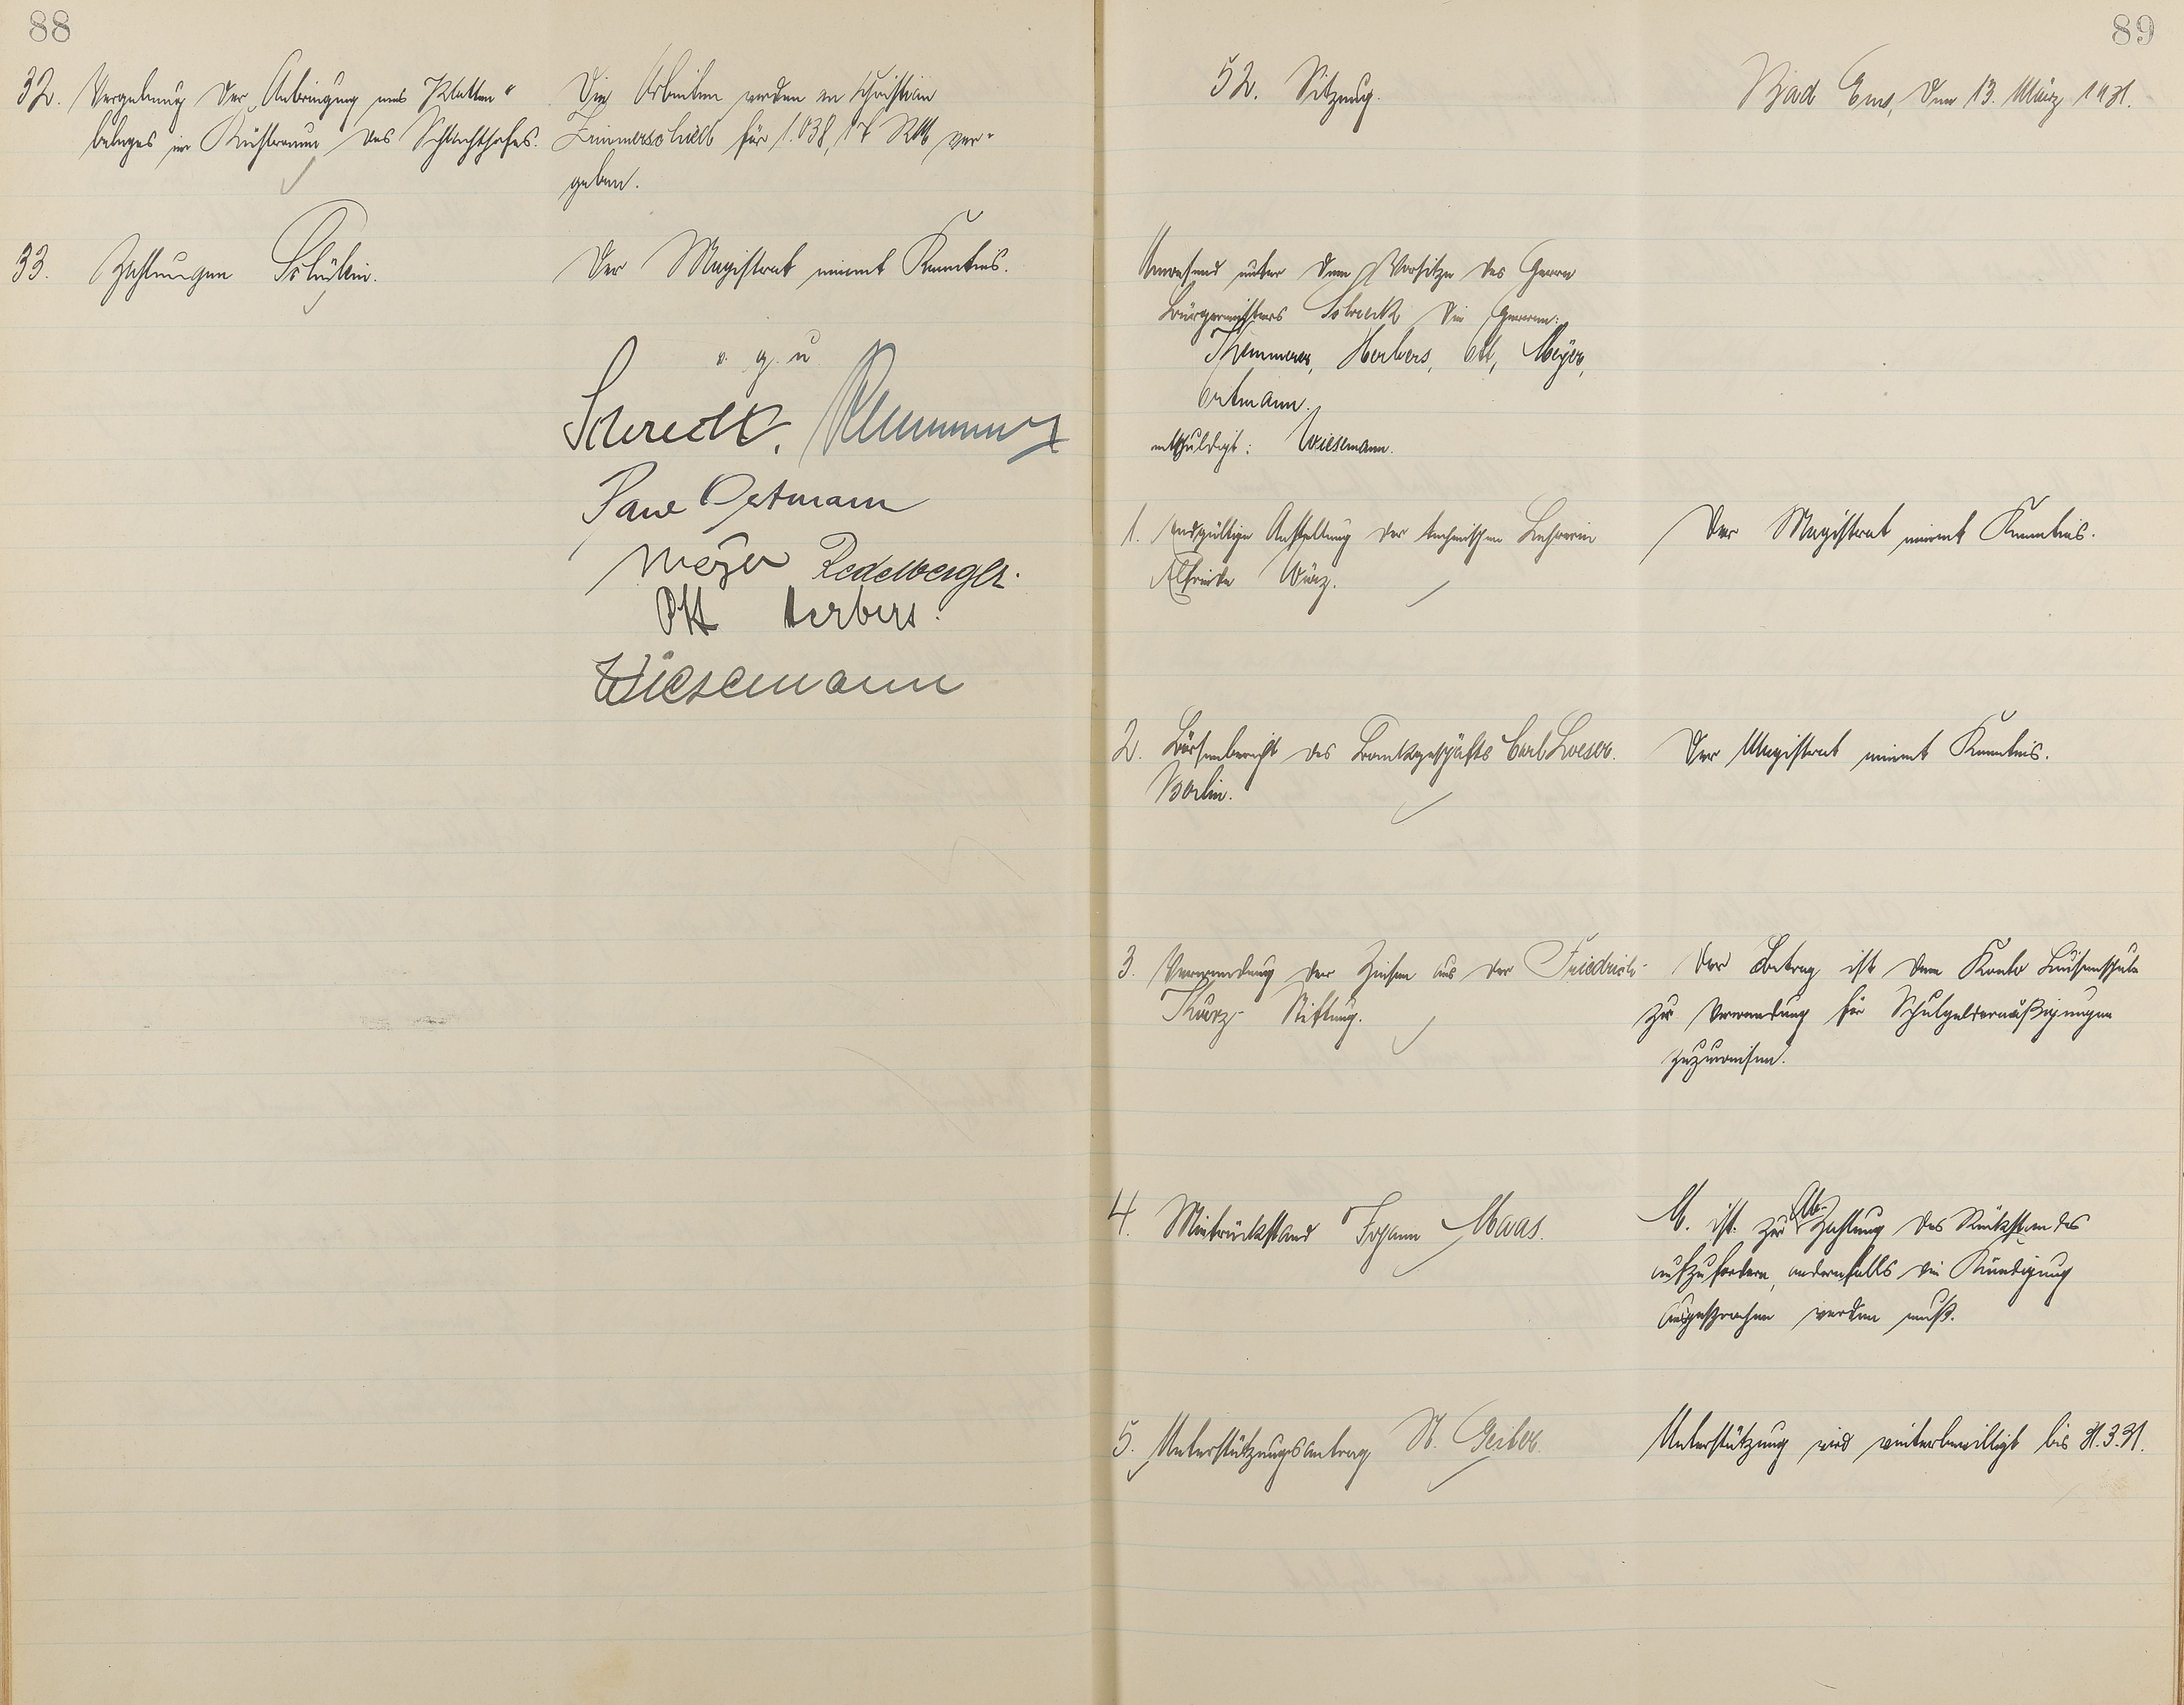 88
32. Vergebung der Anbringung eines Platten-
belages im Kühlraum des Schlachthofes.
Die Arbeiten werden an Christian
Zimmerschied für 1.038,17 RM ver-
geben.
33. Zahlungen Schülein.
Der Magistrat nimmt Kenntnis.
v. g. u.
Schreck.
Paul Ortmann
Meyer Redelberger.
Ott Herbers.
Wiesemann
89
52. Sitzung.
Bad Ems, den 13. März 1931.
Anwesend unter dem Vorsitze des Herrn
Bürgermeisters Schreck die Herren:
Themmerer, Herbers, Ott, Meyer,
Ortmann.
entschuldigt: Wiesemann.
1. Endgültige Anstellung der technischen Lehrerin
Elfriede Würz.
Der Magistrat nimmt Kenntnis.
2. Börsenbericht des Bankgeschäfts Carl Loeser.
Berlin.
Der Magistrat nimmt Kenntnis.
3. Verwendung der Zinsen aus der Friedrich-
Kurz- Stiftung.
Der Betrag ist dem Konto Luisenschule
zur Verwendung für Schulgeldermäßigungen
zuzuweisen.
4. Mietrückstand Johann Maas.
M. ist zur Ab-Zahlung des Rückstandes
aufzufordern, andernfalls die Kündigung
ausgesprochen werden muß.
5. Unterstützungsantrag St. Geiber.
Unterstützung wird weiterbewilligt bis 31.3.31.